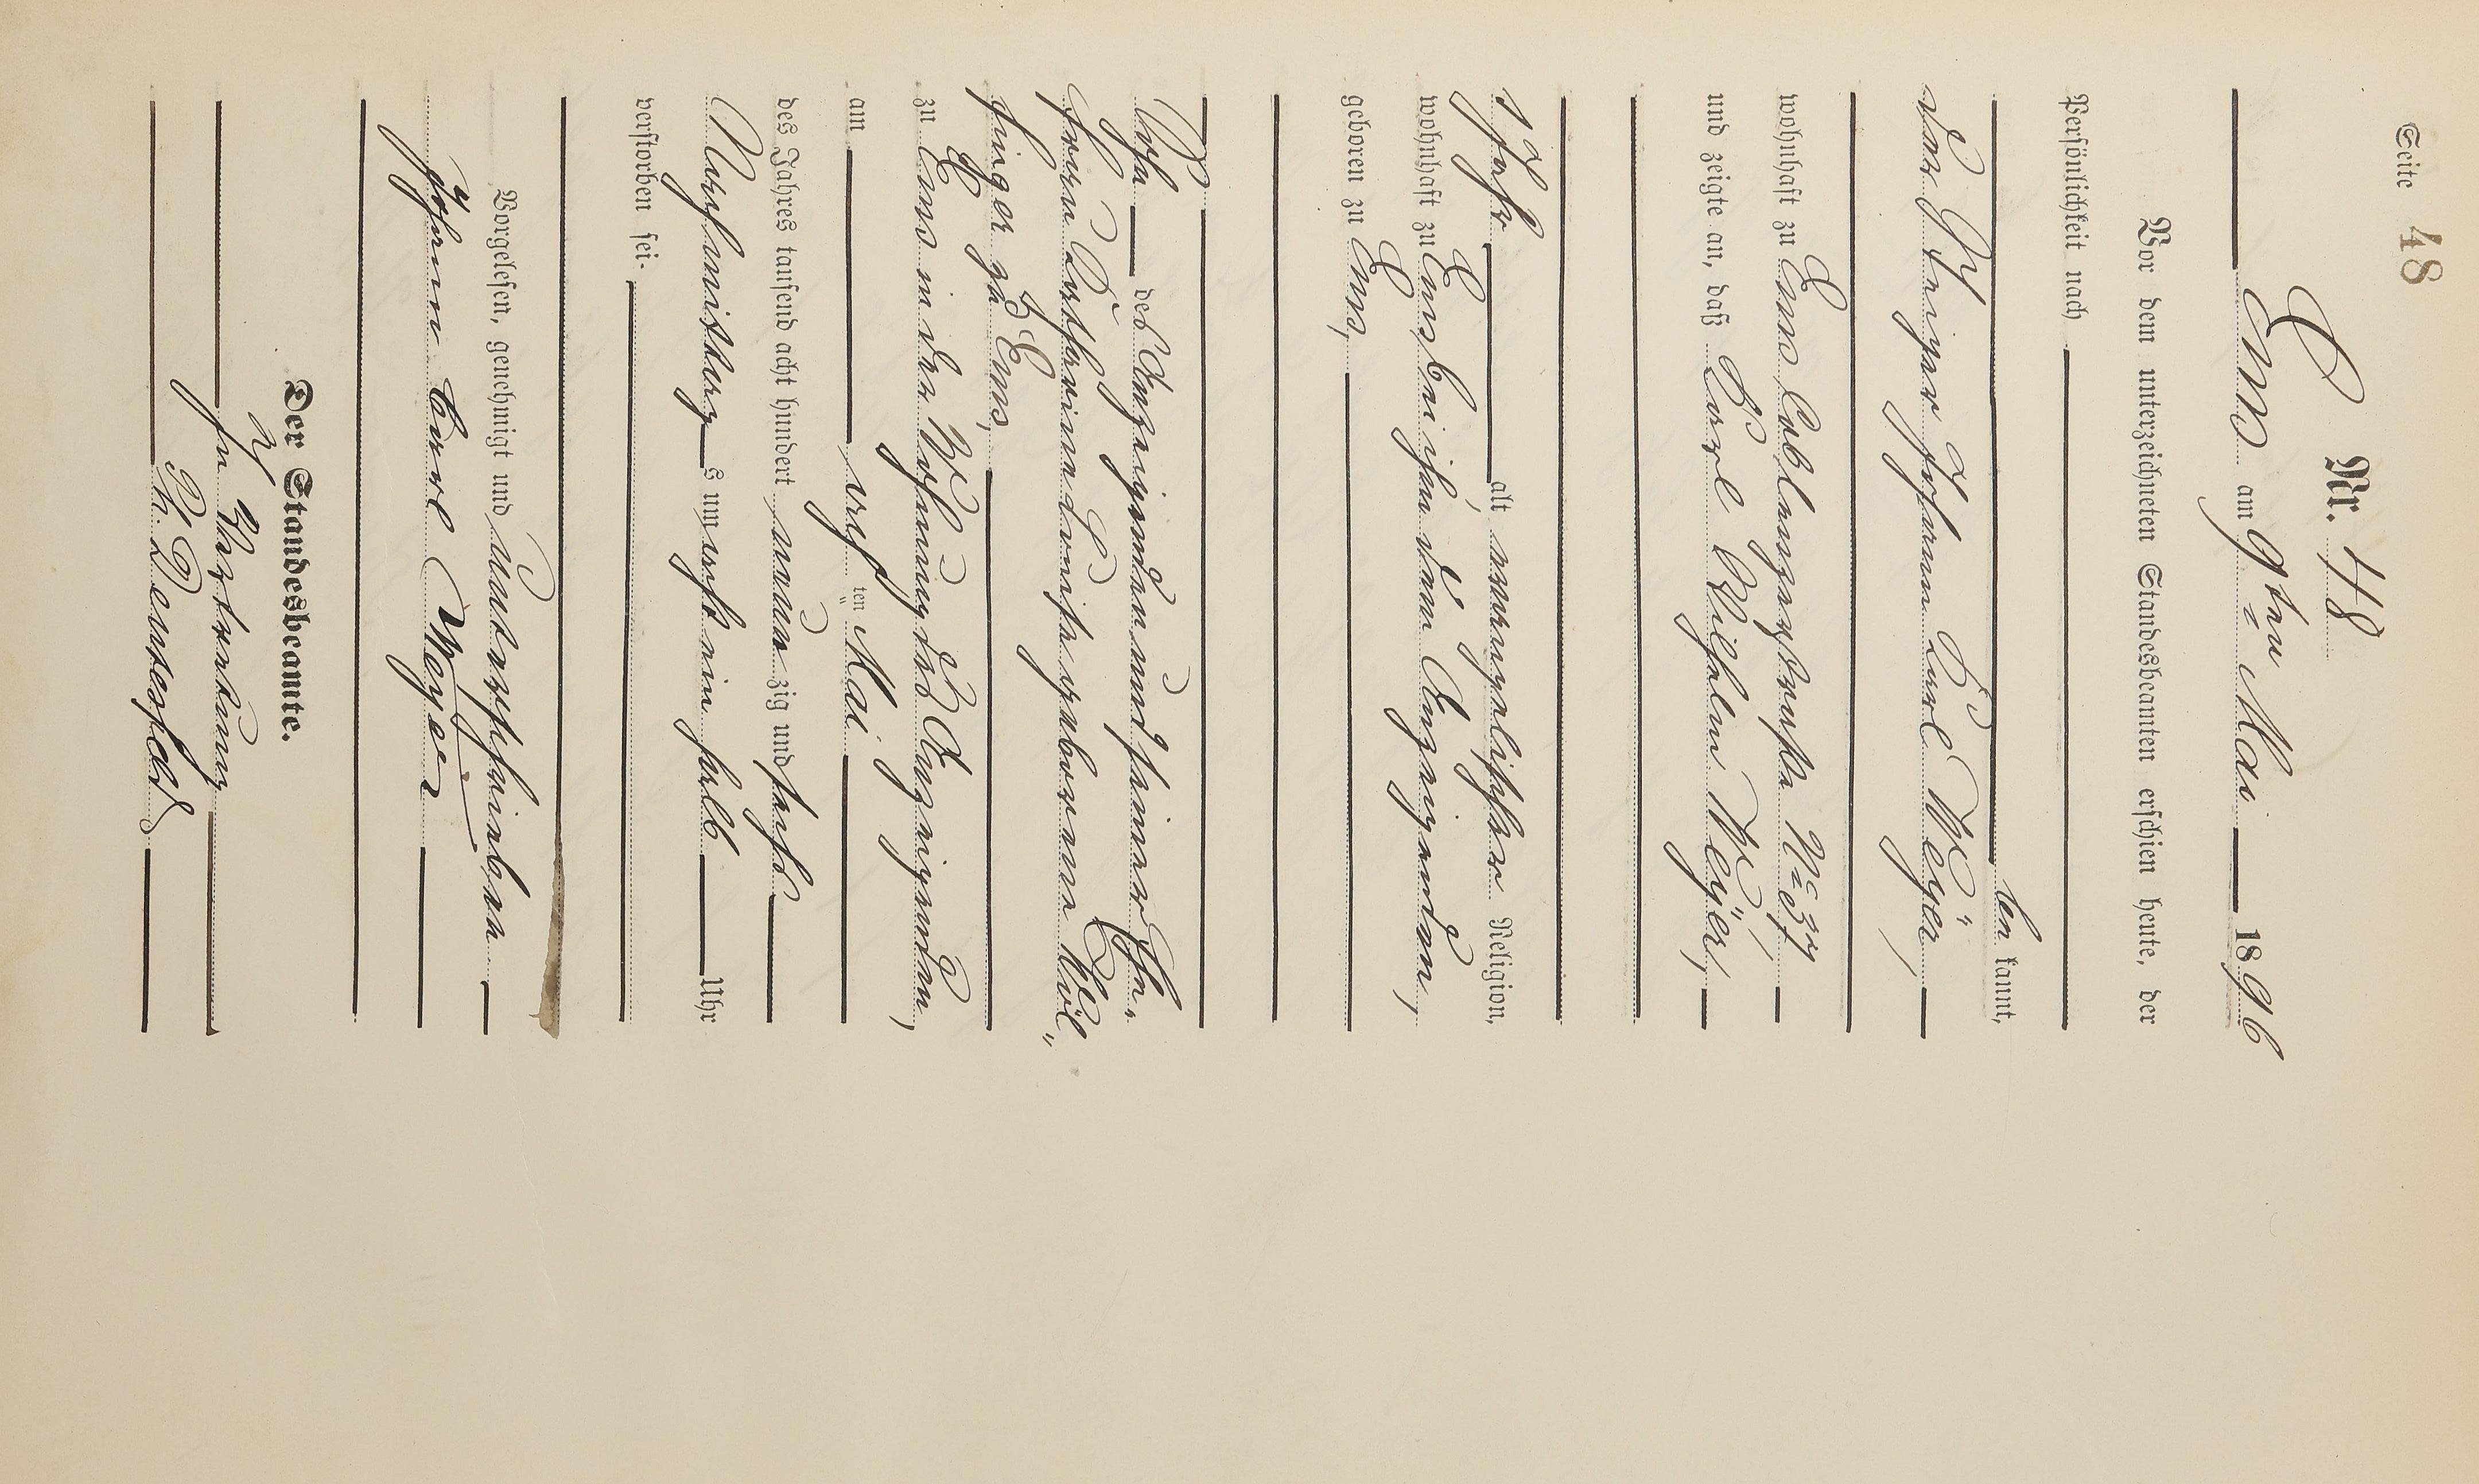 Seite 48
Nr. 48
Ems am 9ten Mai 1896
Vor dem unterzeichneten Standesbeamten erschien heute, der
Persönlichkeit nach
be kannt,
der Steiger Johann Carl Weyer,
wohnhaft zu Ems, Coblenzerstraße No 37,
und zeigte an, daß Karl Wilhelm Weyer,
1 Jahr alt, evangelischer Religion,
wohnhaft zu Ems, bei ihm dem Anzeigenden,
geboren zu Ems,
Sohn des Anzeigenden und seiner Ehe-
frau Katharina Louise geborene Wöl-
finger zu Ems,
zu Ems in der Wohnung des Anzeigenden,
am acht ten Mai
des Jahres tausend acht hundert neun zig und sechs
Nachmittag s um acht ein halb Uhr
verstorben sei.
Vorgelesen, genehmigt und unterschrieben
Johann Carl Weyer
Der Standesbeamte.
In Vertretung